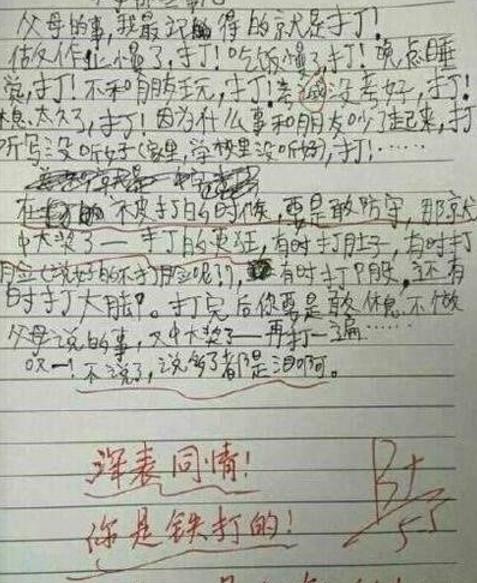 父母的事,我最记得的就是打!
做作业慢了,打!吃饭慢了,打!晚点睡
觉,打!不和朋友玩,打!考试没考好,打!
休息太久了,打!因为什么事和朋友吵了起来,打
听写没听好(家里,学校里没听好),打!……
在 被打的时候,要是敢防守,那就
中大奖了——打的更狂,有时打肚子,有时打
脸(说好的不打脸呢!?),有时打腿,还有
时打大腿。打完后你要是敢休息,不做
父母说的事,又中大奖了——再打一遍……
哎一!不说了,说多了都是泪啊。
深表同情!
你是铁打的!
B+